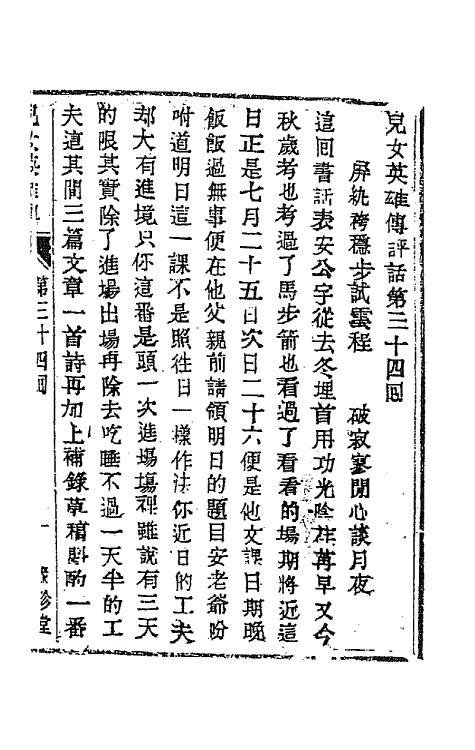 兒女英雄傳評話第三十四回
屏紈袴穩步試雲程　破寂寥閒心談月夜
這回書話表安公子從去冬埋首用功光陰荏苒早又今
秋歲考也考過了馬步箭也看過了看看的場期將近這
日正是七月二十五日次日二十六便是他文課日期晚
飯飯過無事便在他父親前請領明日的題目安老爺吩
咐道明日這一課不是照徃日一樣作法你近日的工夫
却大有進境只你這番是頭一次進場塲裡雖說有三天
的限其實除了進場出場再除去吃睡不過一天半的工
夫這其間三篇文章一首詩再加上補錄草稿斟酌一番
第三十四回　一　珍堂